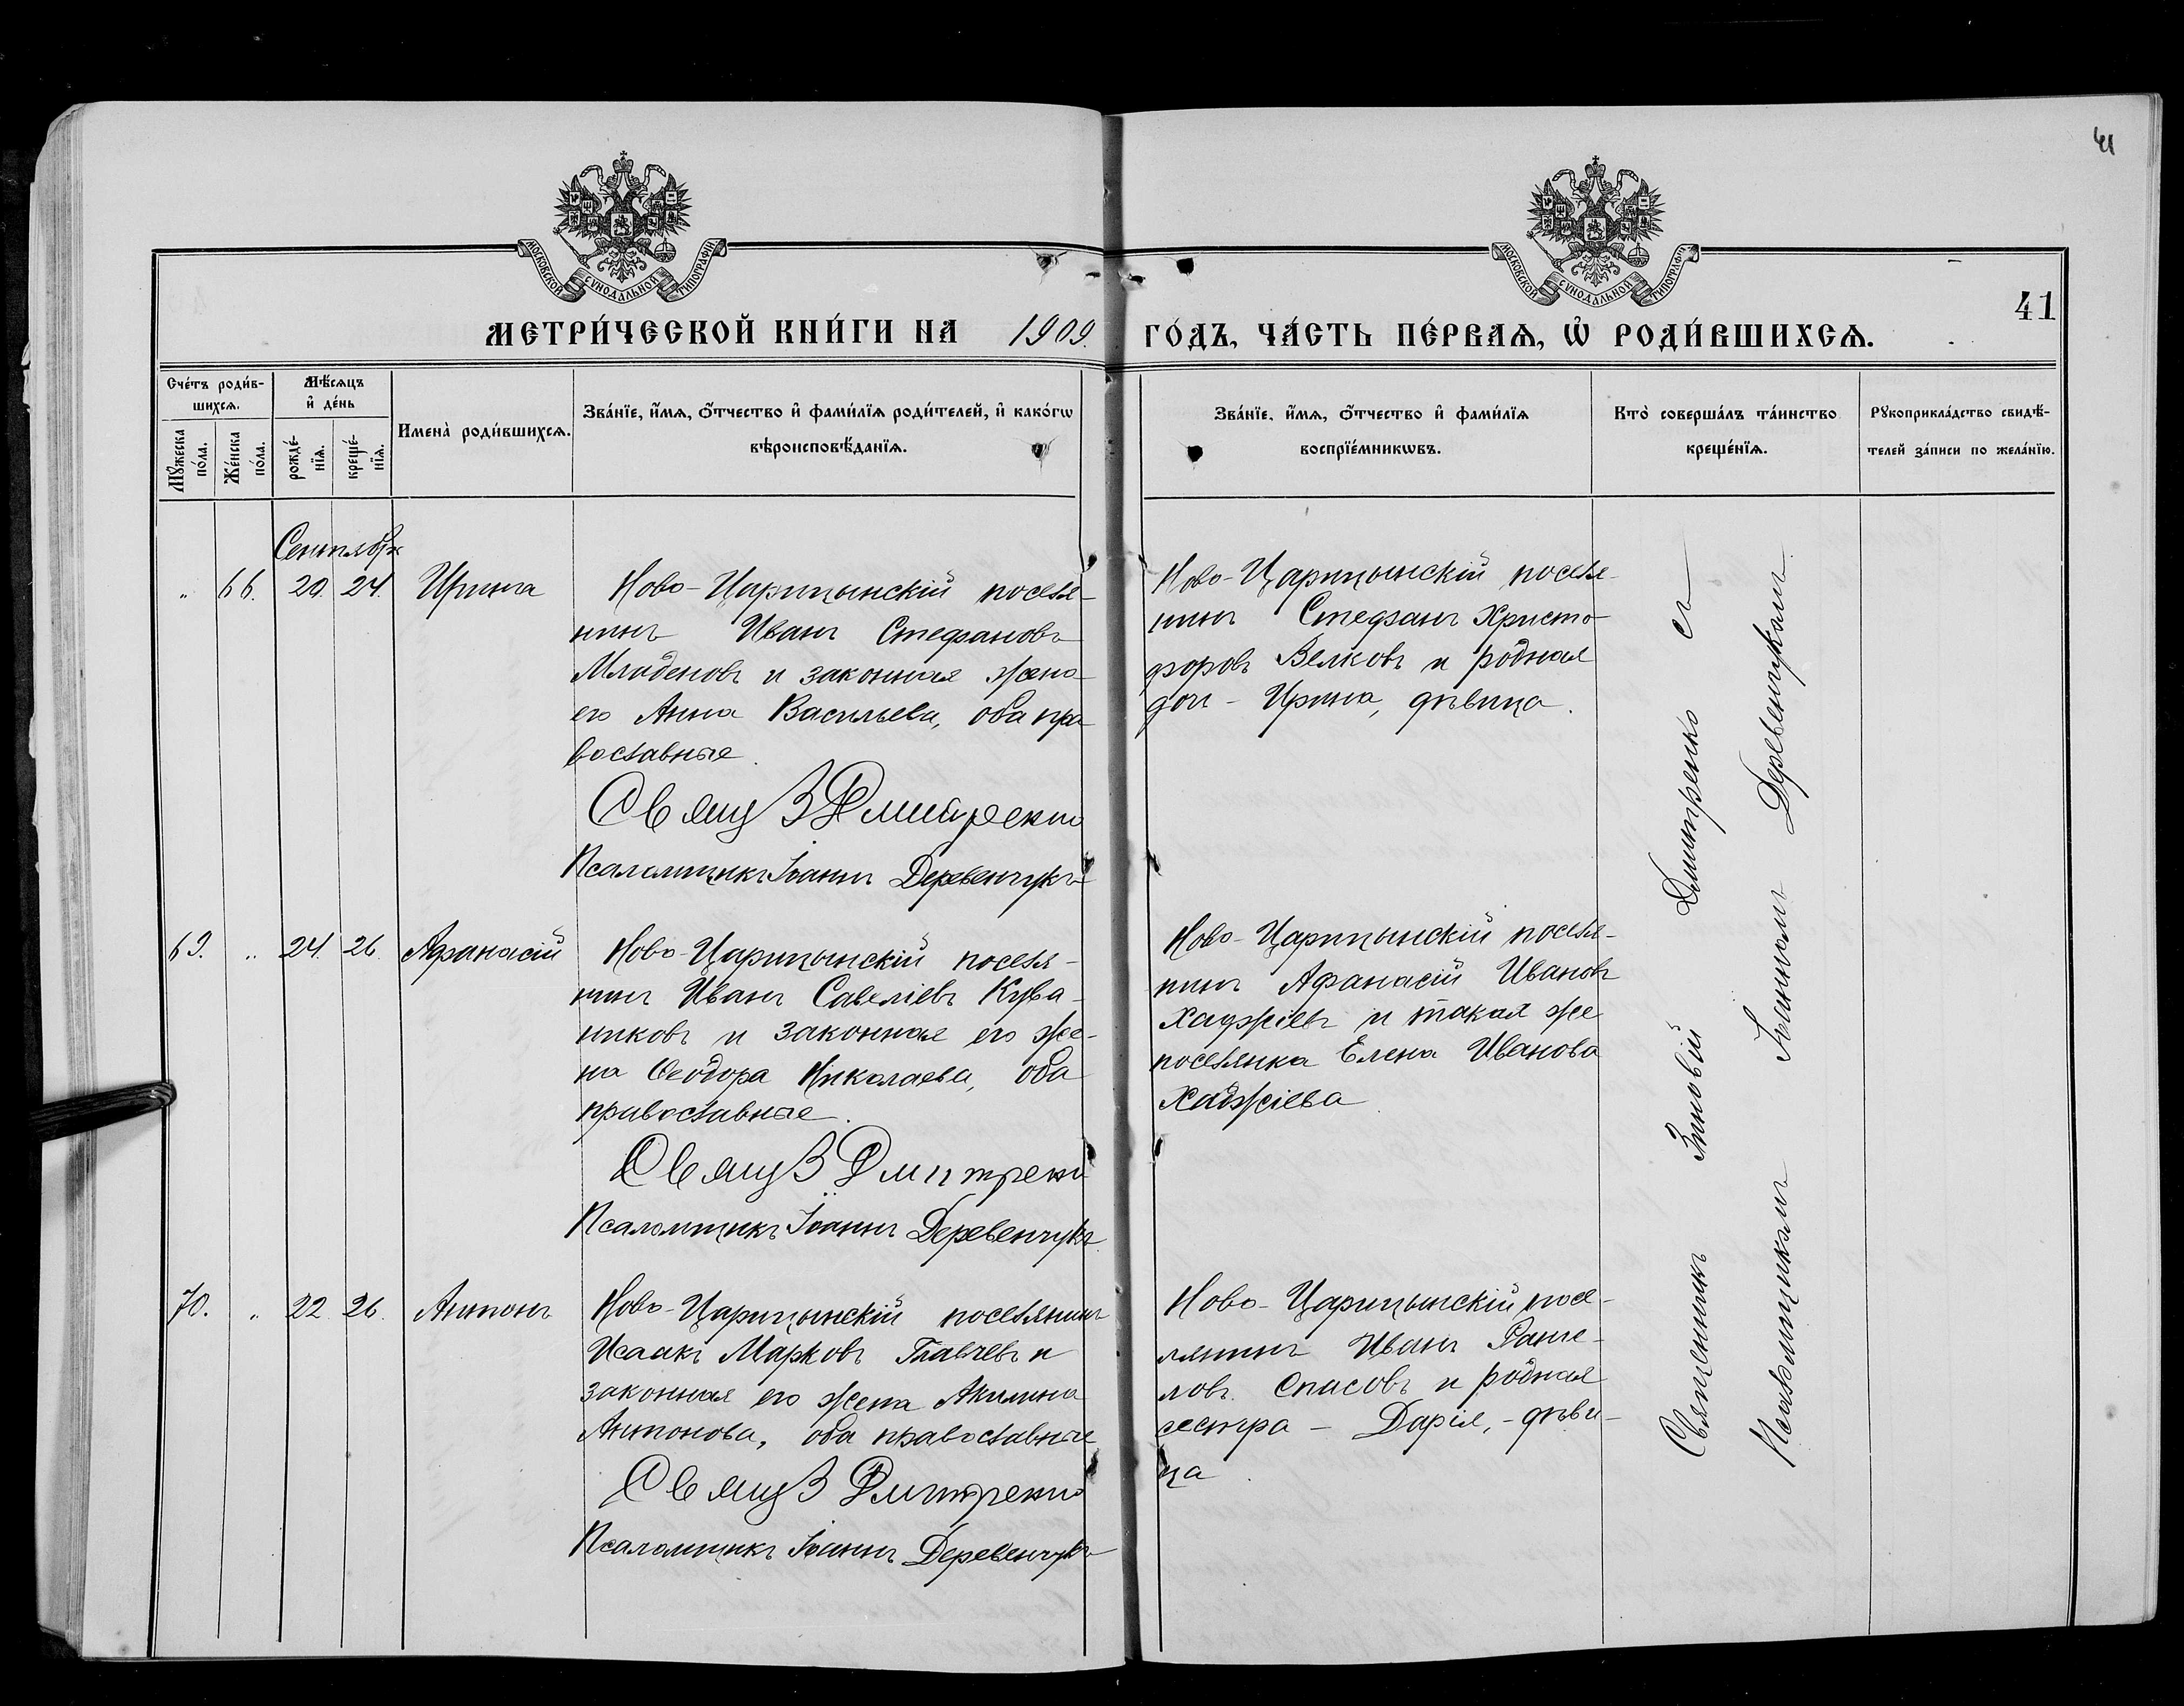 41
МОСКОВСКОЙ СѴНОДАЛЬНОЙ ТИПОГРАФІИ
МОСКОВСКОЙ СѴНОДАЛЬНОЙ ТИПОГРАФІИ
41
МЕТРИ́ЧЕСКОЙ КНИ́ГИ НА 1909. ГО́ДЪ, ЧА́СТЬ ПЕ́РВАѦ, Ѡ҆ РОДИ́ВШИХСѦ.
Сче́тъ роди́в-
шихсѧ.
Мꙋ́жеска
по́ла.
Же́нска
по́ла.
Мѣ́сѧцъ
и҆ де́нь
рожде́-
нїѧ.
креще́-
нїѧ.
Имена̀ роди́вшихсѧ.
Зва́нїе, и҆́мѧ, ѻ҆́тчество и҆ фами́лїѧ роди́телей, и҆ како́гѡ
вѣроисповѣ́данїѧ.
Зва́нїе, и҆́мѧ, ѻ҆́тчество и҆ фами́лїѧ
воспрїе́мникѡвъ.
Кто̀ соверша́лъ та́инство
креще́нїѧ.
Рꙋкоприкла́дство свидѣ́-
телей за́писи по жела́нїю.
Сентябрь
„ 66. 20. 24. Ирина
Ново-Царицынскій поселя-
нинъ Иванъ Стефановъ
Младеновъ и законная жена
его Анна Васильева, оба пра
вославные.
Свящ З Дмитренко
Псаломщикъ Іоаннъ Деревенчукъ
Ново-Царицынскій поселя-
нинъ Стефанъ Христо-
форовъ Велковъ и родная
доч - Ирина, дѣвица.
69. „ 24. 26. Афанасій
Ново-Царицынскій поселя-
нинъ Иванъ Савеліевъ Кува-
никовъ и законная его же-
на Ѳеодора Николаева, оба
православные.
Свящ З Дмитренко
Псаломщикъ Іоаннъ Деревенчукъ
Ново-Царицынскій поселя-
нинъ Афанасій Ивановъ
Хаджіевъ и такая же
поселянка Елена Иванова
Хаджіева
70. „ 22. 26. Антонъ
Ново-Царицынскій поселянинъ
Исаакъ Марковъ Главчевъ и
законная его жена Акилина
Антонова, оба православные
Свящ З Дмитренко
Псаломщикъ Іоаннъ Деревенчукъ
Ново-Царицынскій посе-
лянинъ Иванъ Ранге-
ловъ Спасовъ и родная
сестра - Дарія, - дѣви-
ца.
Священникъ Зиновій Дмитренко съ
Псаломщикомъ Іоанномъ Деревенчукомъ